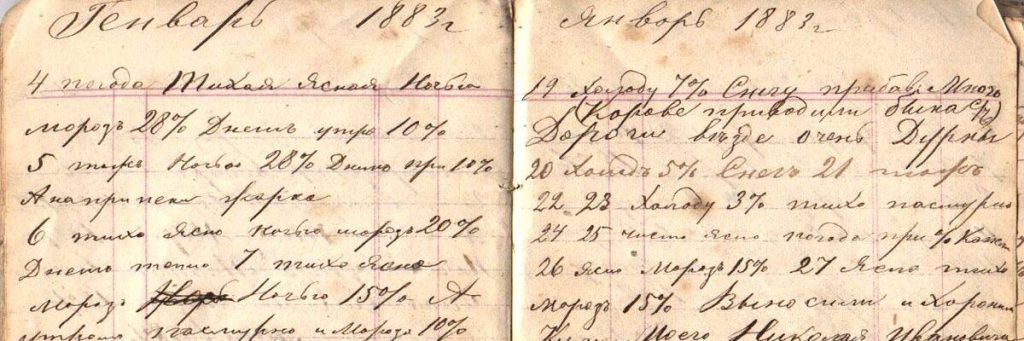 Генварь 1883 г
4 погода Тихая Ясная Ночью
морозъ 28% Днемъ утро 10%
5 тожъ Ночью 28% Днемъ при 10%
А на припеки жарко
6 тихо Ясно ночью морозъ 20%
Днемъ тепло 7 тихо Ясно
морозъ Ночью 15% А
утромъ пасмурно и Морозъ 10%
Январь 1883 г
19 Холоду 7% Снегу прибав. Много
(Корове приводили быка
Дороги възде очень Дурны
20 Холодъ 5% Снегъ 21 тожъ
22 23 Холоду 3% тихо пасмурно
24 25 чисто ясно погода при %
26 Ясно Морозъ 15% 27 Ясно тихо
Морозъ 15% Выносили и Хоронили
Моего Николая Ивановича